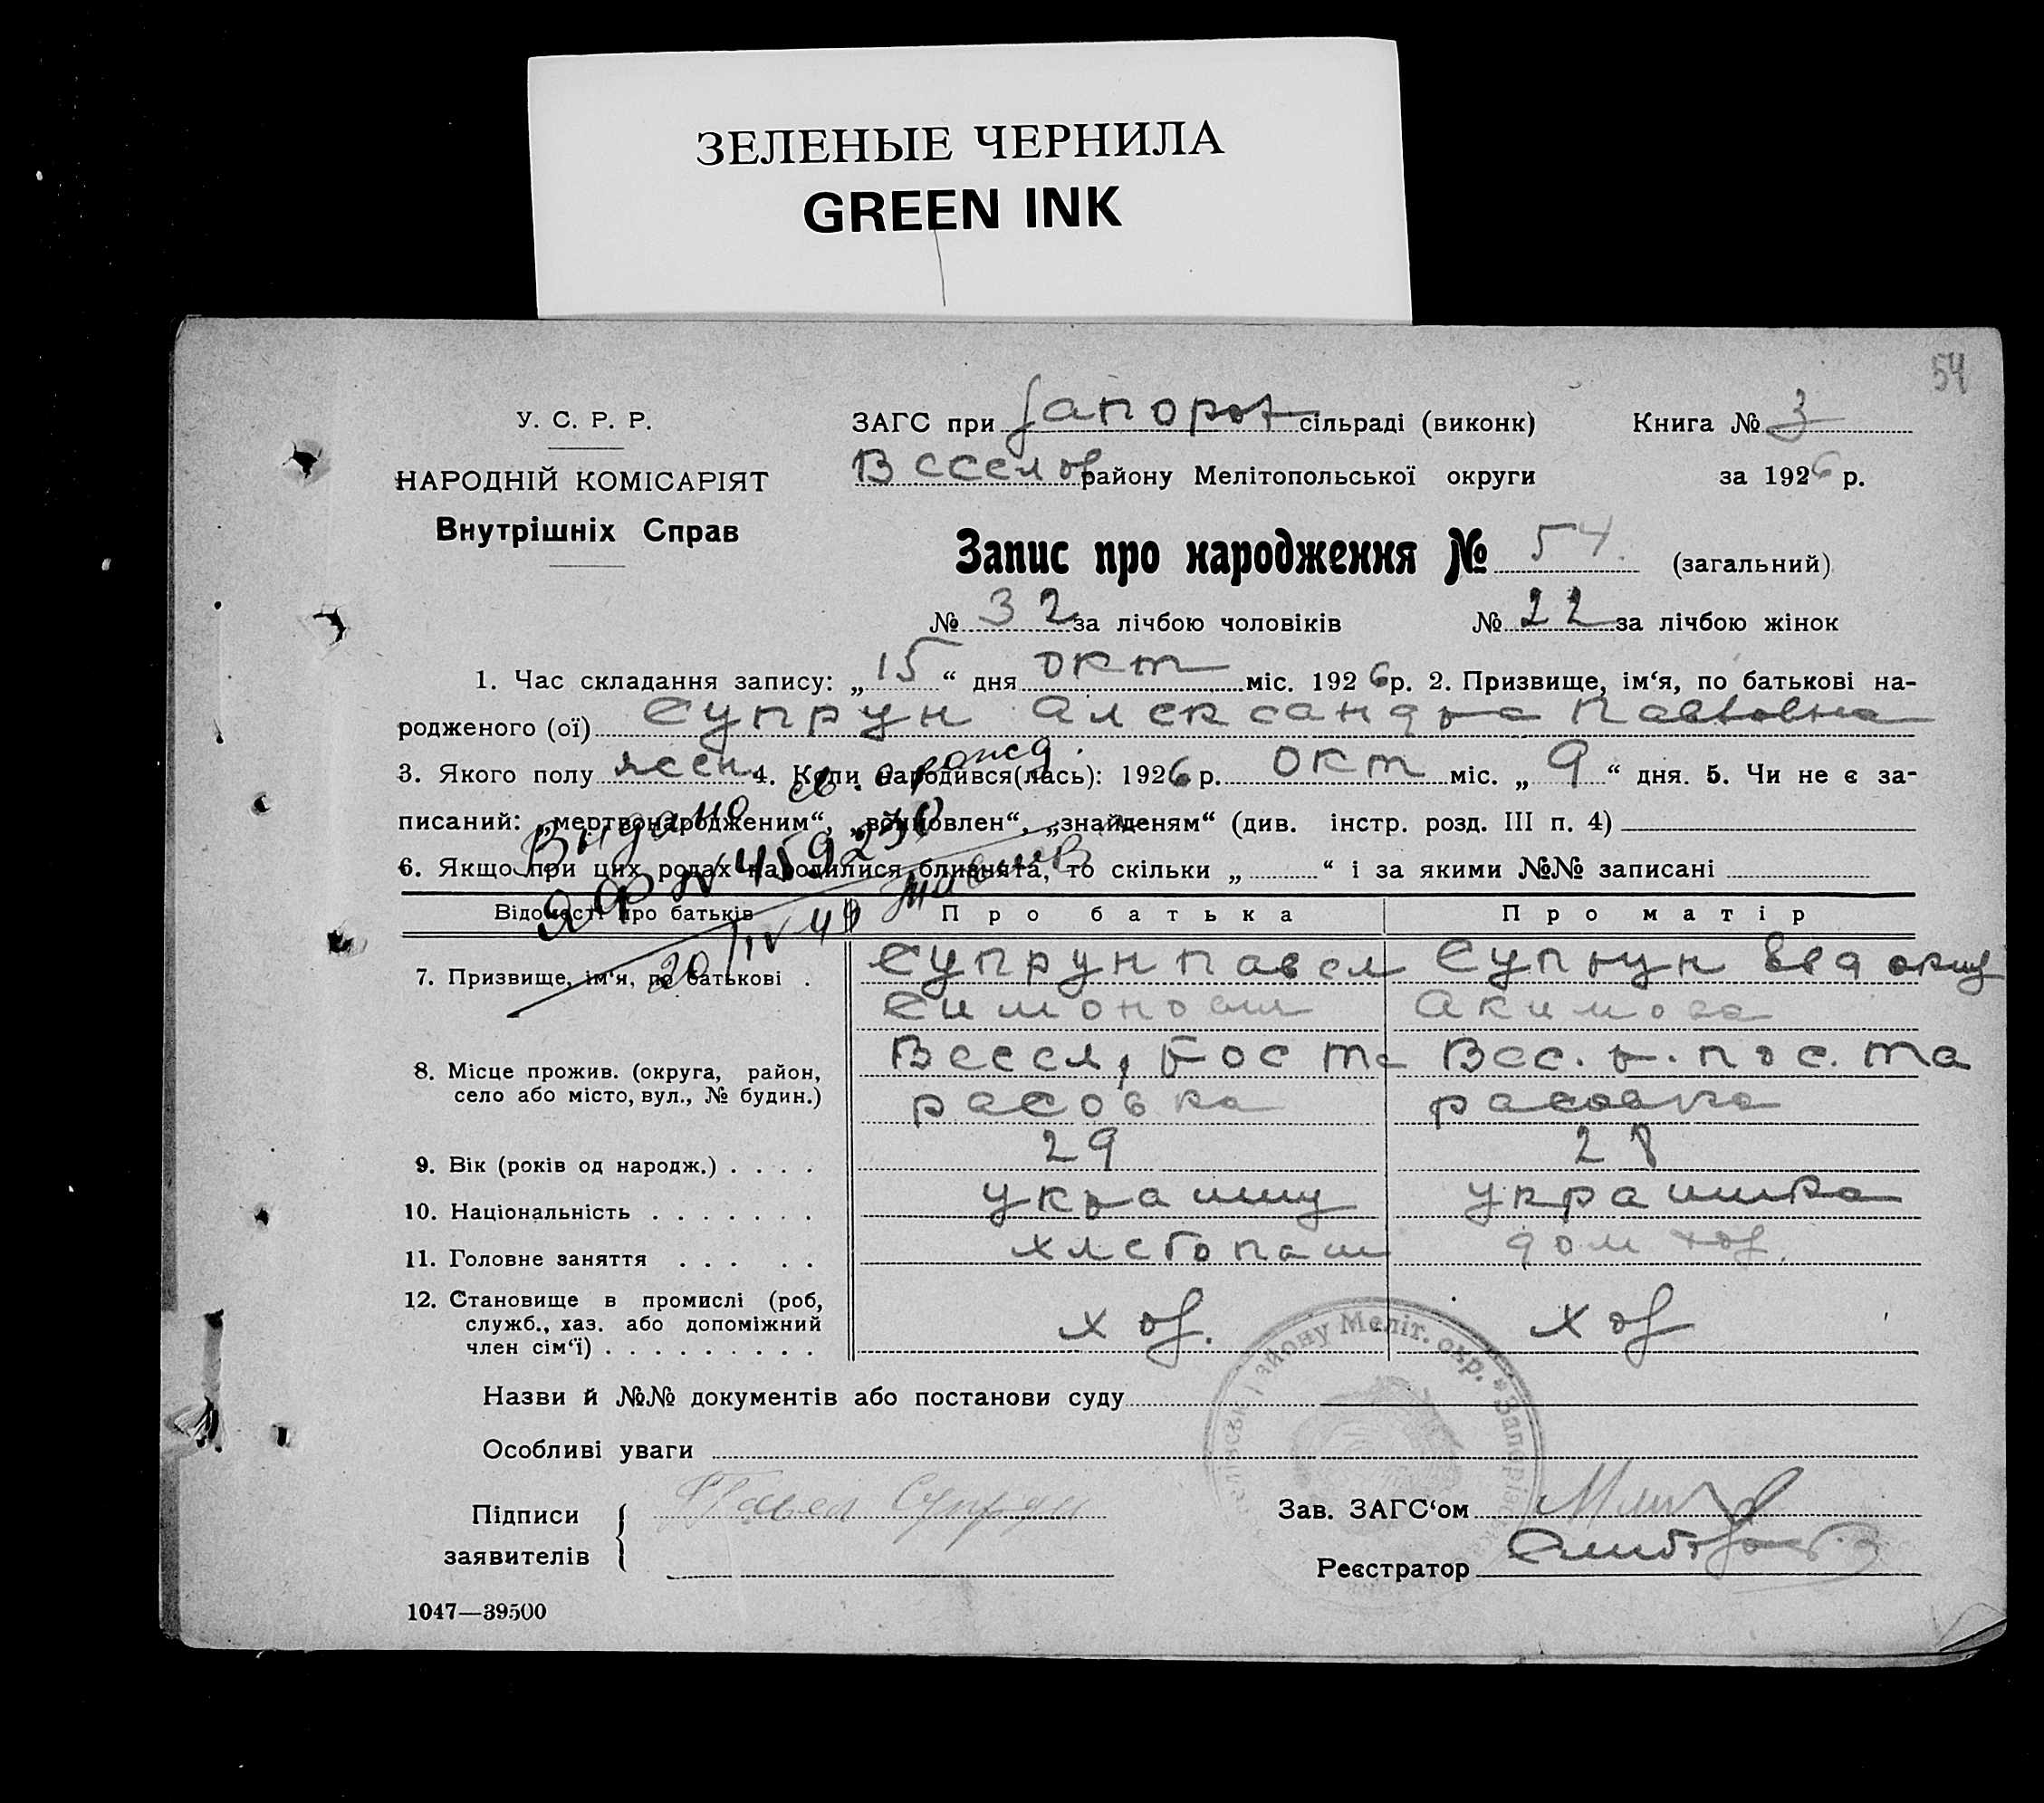 ЗЕЛЕНЫЕ ЧЕРНИЛА
GREEN INK
54
У. С. Р. Р.
НАРОДНІЙ КОМІСАРІЯТ
Внутрішніх Справ
ЗАГС при Запорож сільраді (виконк) Книга № 3
Веселов району Мелітопольської округи за 1926 р.
Запис про народження № 54. (загальний)
№ 32 за лічбою чоловіків № 22 за лічбою жінок
1. Час складання запису: „15“ дня окт міс. 1926 р. 2. Призвище, ім‘я, по батькові на-
родженого (ої) Супрун Александра Павловна
3. Якого полу жен. 4. Коли народився(лась): 1926 р. окт міс. „9“ дня. 5. Чи не є за-
писаний: „мертвонародженим“, „воуновлен“, „знайденям“ (див. інстр. розд. III п. 4)
6. Якщо при цих родах народилися близнята, то скільки „ “ і за якими №№ записані
Выдано св. о рожд.
ЯФ № 459230
20/IV 49
Відомості про батьків Про батька Про матір
7. Призвище, ім‘я, по батькові . Супрун Павел Супрун Евдоким
Симонович Акимова
8. Місце прожив. (округа, район, Весел, Пос Та Вес. р. пос. Та
село або місто, вул., № будин.) расовка расовка
9. Вік (років од народж.) . . . . 29 28
10. Національність . . . . . . . украинц украинка
11. Головне заняття . . . . . хлебопаш дом хоз.
12. Становище в промислі (роб,
служб., хаз. або допоміжний хоз. хоз
член сім‘ї) . . . . . . . . .
Назви й №№ документів або постанови суду
Особливі уваги
Підписи заявителів Павел Супрун
Зав. ЗАГС‘ом
Реєстратор
1047—39500
району Меліт. окр.